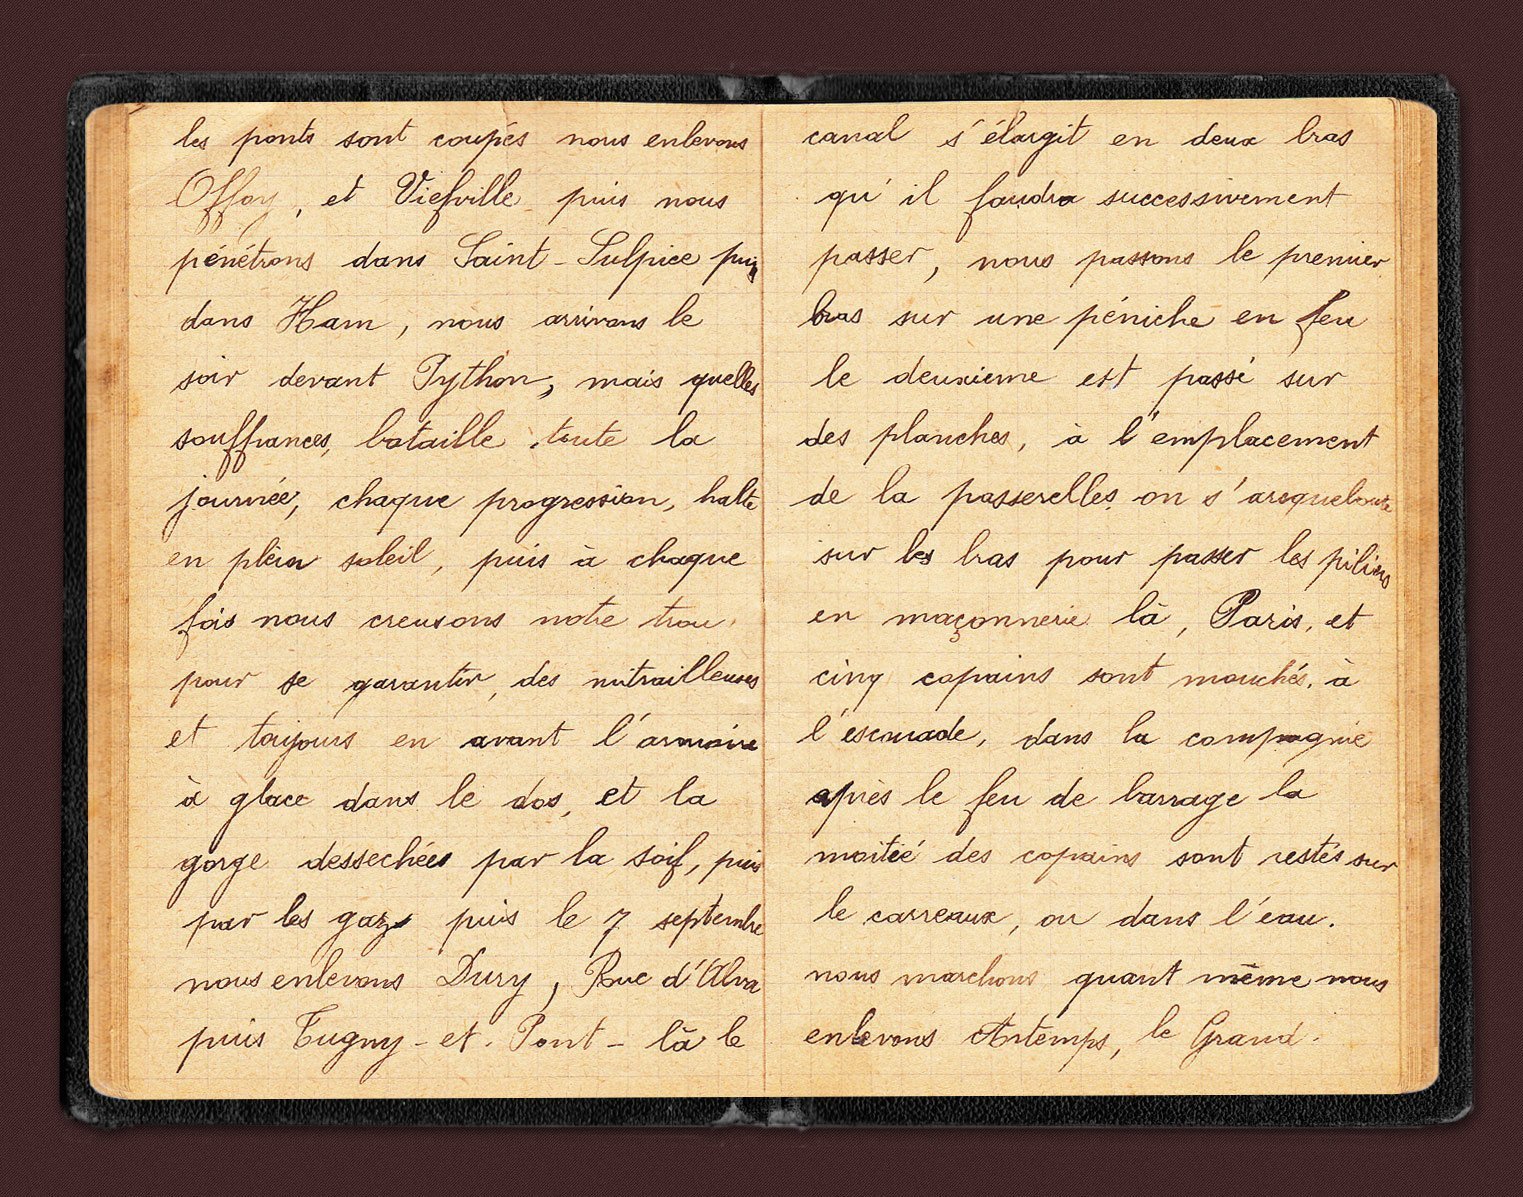 les ponts sont coupés nous enlevons
Offoy, et Viefville puis nous
pénétrons dans Saint-Sulpice puis
dans Ham, nous arrivons le
soir devant Python, mais quelles
souffrances, bataille toute la
journée, chaque progression, halte
en plein soleil, puis à chaque
fois nous creusons notre trou
pour se garantir, des mitrailleuses
et toujours en avant l'armoire
à glace dans le dos, et la
gorge dessechées par la soif, puis
par les gaz puis le 7 septembre
nous enlevons Dury, Rue d'Alva
puis Tugny-et-Pont-là le
canal s'élargit en deux bras
qu'il faudra successivement
passer, nous passons le premier
bras sur une péniche en feu
le deuxieme est passé sur
des planches, à l'emplacement
de la passerelles on s'
sur les bras pour passer les piliers
en maçonnerie là, Paris, et
cinq copains sont mouchés, à
l'escouade, dans la compagnie
après le feu de barrage la
moitié des copains sont restés sur
le carreaux, ou dans l'eau.
nous marchons quant même nous
enlevons Artemps, le Grand